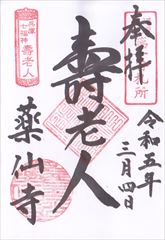 奉拝
令和五年
三月四日
壽老人
兵庫
七福神
壽老人
薬仙寺